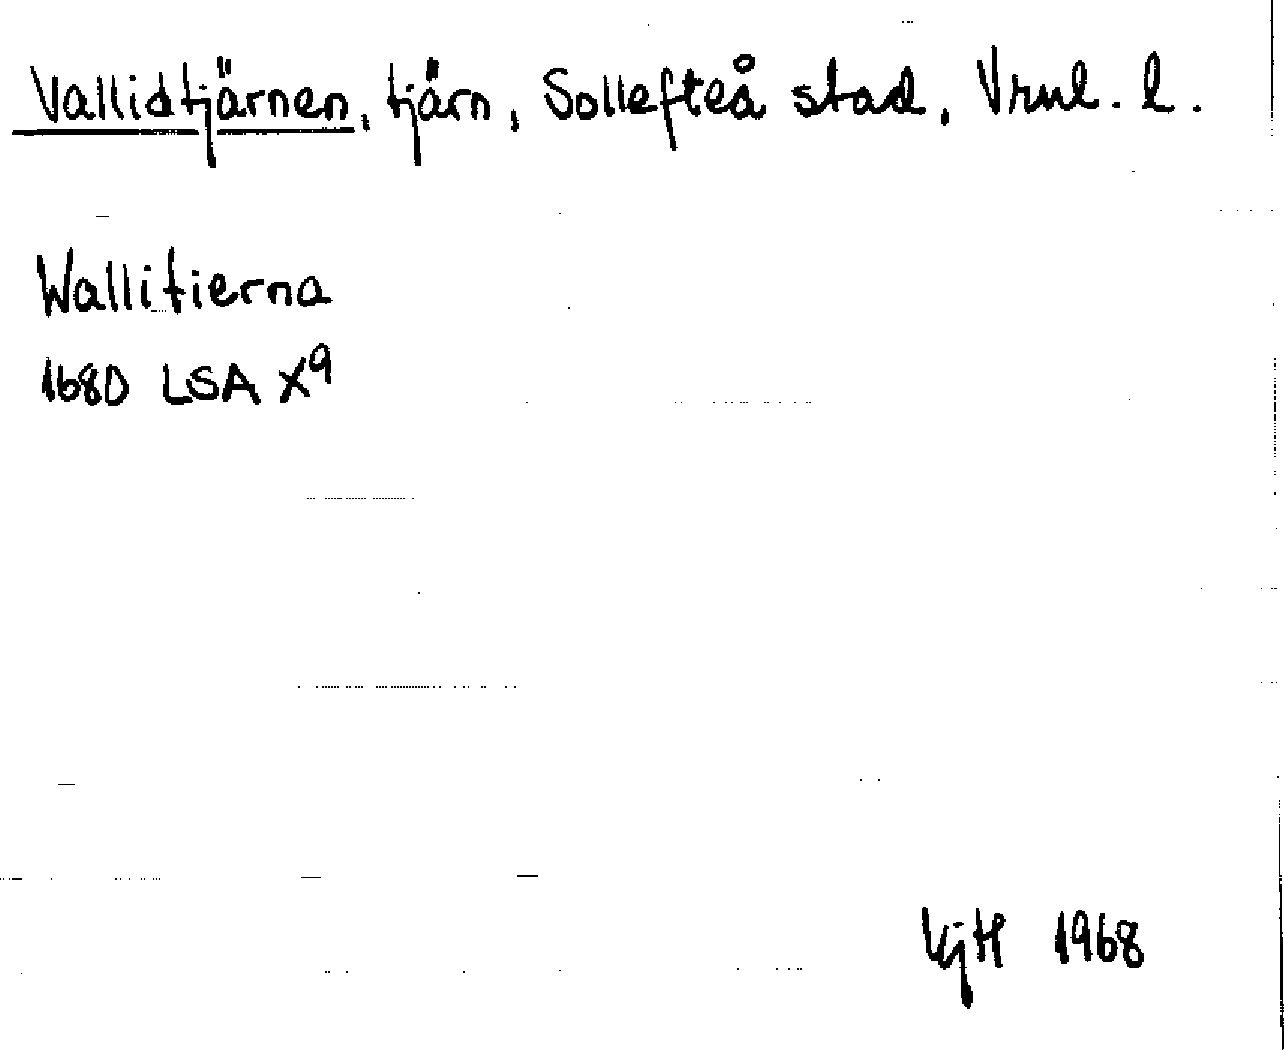 Vallidtjärnen, tjärn, Sollefteå stad, Vrnl. l.
Wallitierna
1680 LSA X9
1968